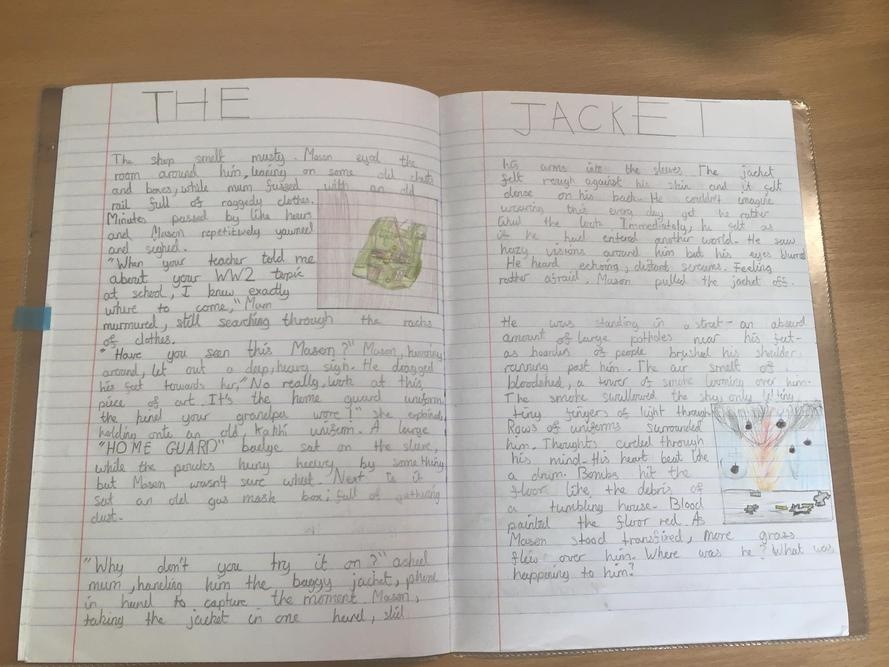 THE
The shop smelt musty. Mason eyed the
room around him, leaning on some old
and boxes, while mum fussed with an old
rail full of raggedy clothes.
Minutes passed by like hours
and Mason repetitively yawned
and sighed.
"When your teacher told me
about your WW2 topic
at school, I knew exactly
where to come," Mum
murmured, still searching through the racks
of clothes.
"Have you seen this Mason?" Mason,
around, let out a deep, heavy sigh. He dragged
his feet towards her, "No really, look at this
piece of art. It's the home guard uniform
the kind your grandpa wore!" she explained,
holding onto an old, kahki uniform. A large
"HOME GUARD" badge sat on the sleeve,
while the pockets hung heavy by something
but Mason wasn't sure what. Next to it
sat an old gas mask box; full of gathering
dust.
"Why don't you try it on?" asked
mum, handing him the baggy jacket, phone
in hand to capture the moment. Mason,
taking the jacket in one hand, slid
JACKET
his arms into the sleeves. The jacket
felt rough against his skin and it felt
dense on his back. He couldn't imagine
wearing this every day yet he rather
liked the look. Immediately, he felt as
if he had entered another world. He saw
hazy visions around him but his eyes blurred
He heard echoing, distant screams. Feeling
rather afraid, Mason pulled the jacket off.
He was standing in a street - an absurd
amount of large potholes near his feet-
as hoardes of people brushed his shoulder
running past him. The air smelt of
bloodshed, a tower of smoke looming over him.
The smoke swallowed the sky only letting
tiny fingers of light through
Rows of uniforms surrounded
him. Thoughts circled through
his mind. His heart beat like
a drum. Bombs hit the
floor like, the debris of
a tumbling house. Blood
painted the floor red. As
Mason stood transfixed, more grass
flew over him. Where was he? What was
happening to him?